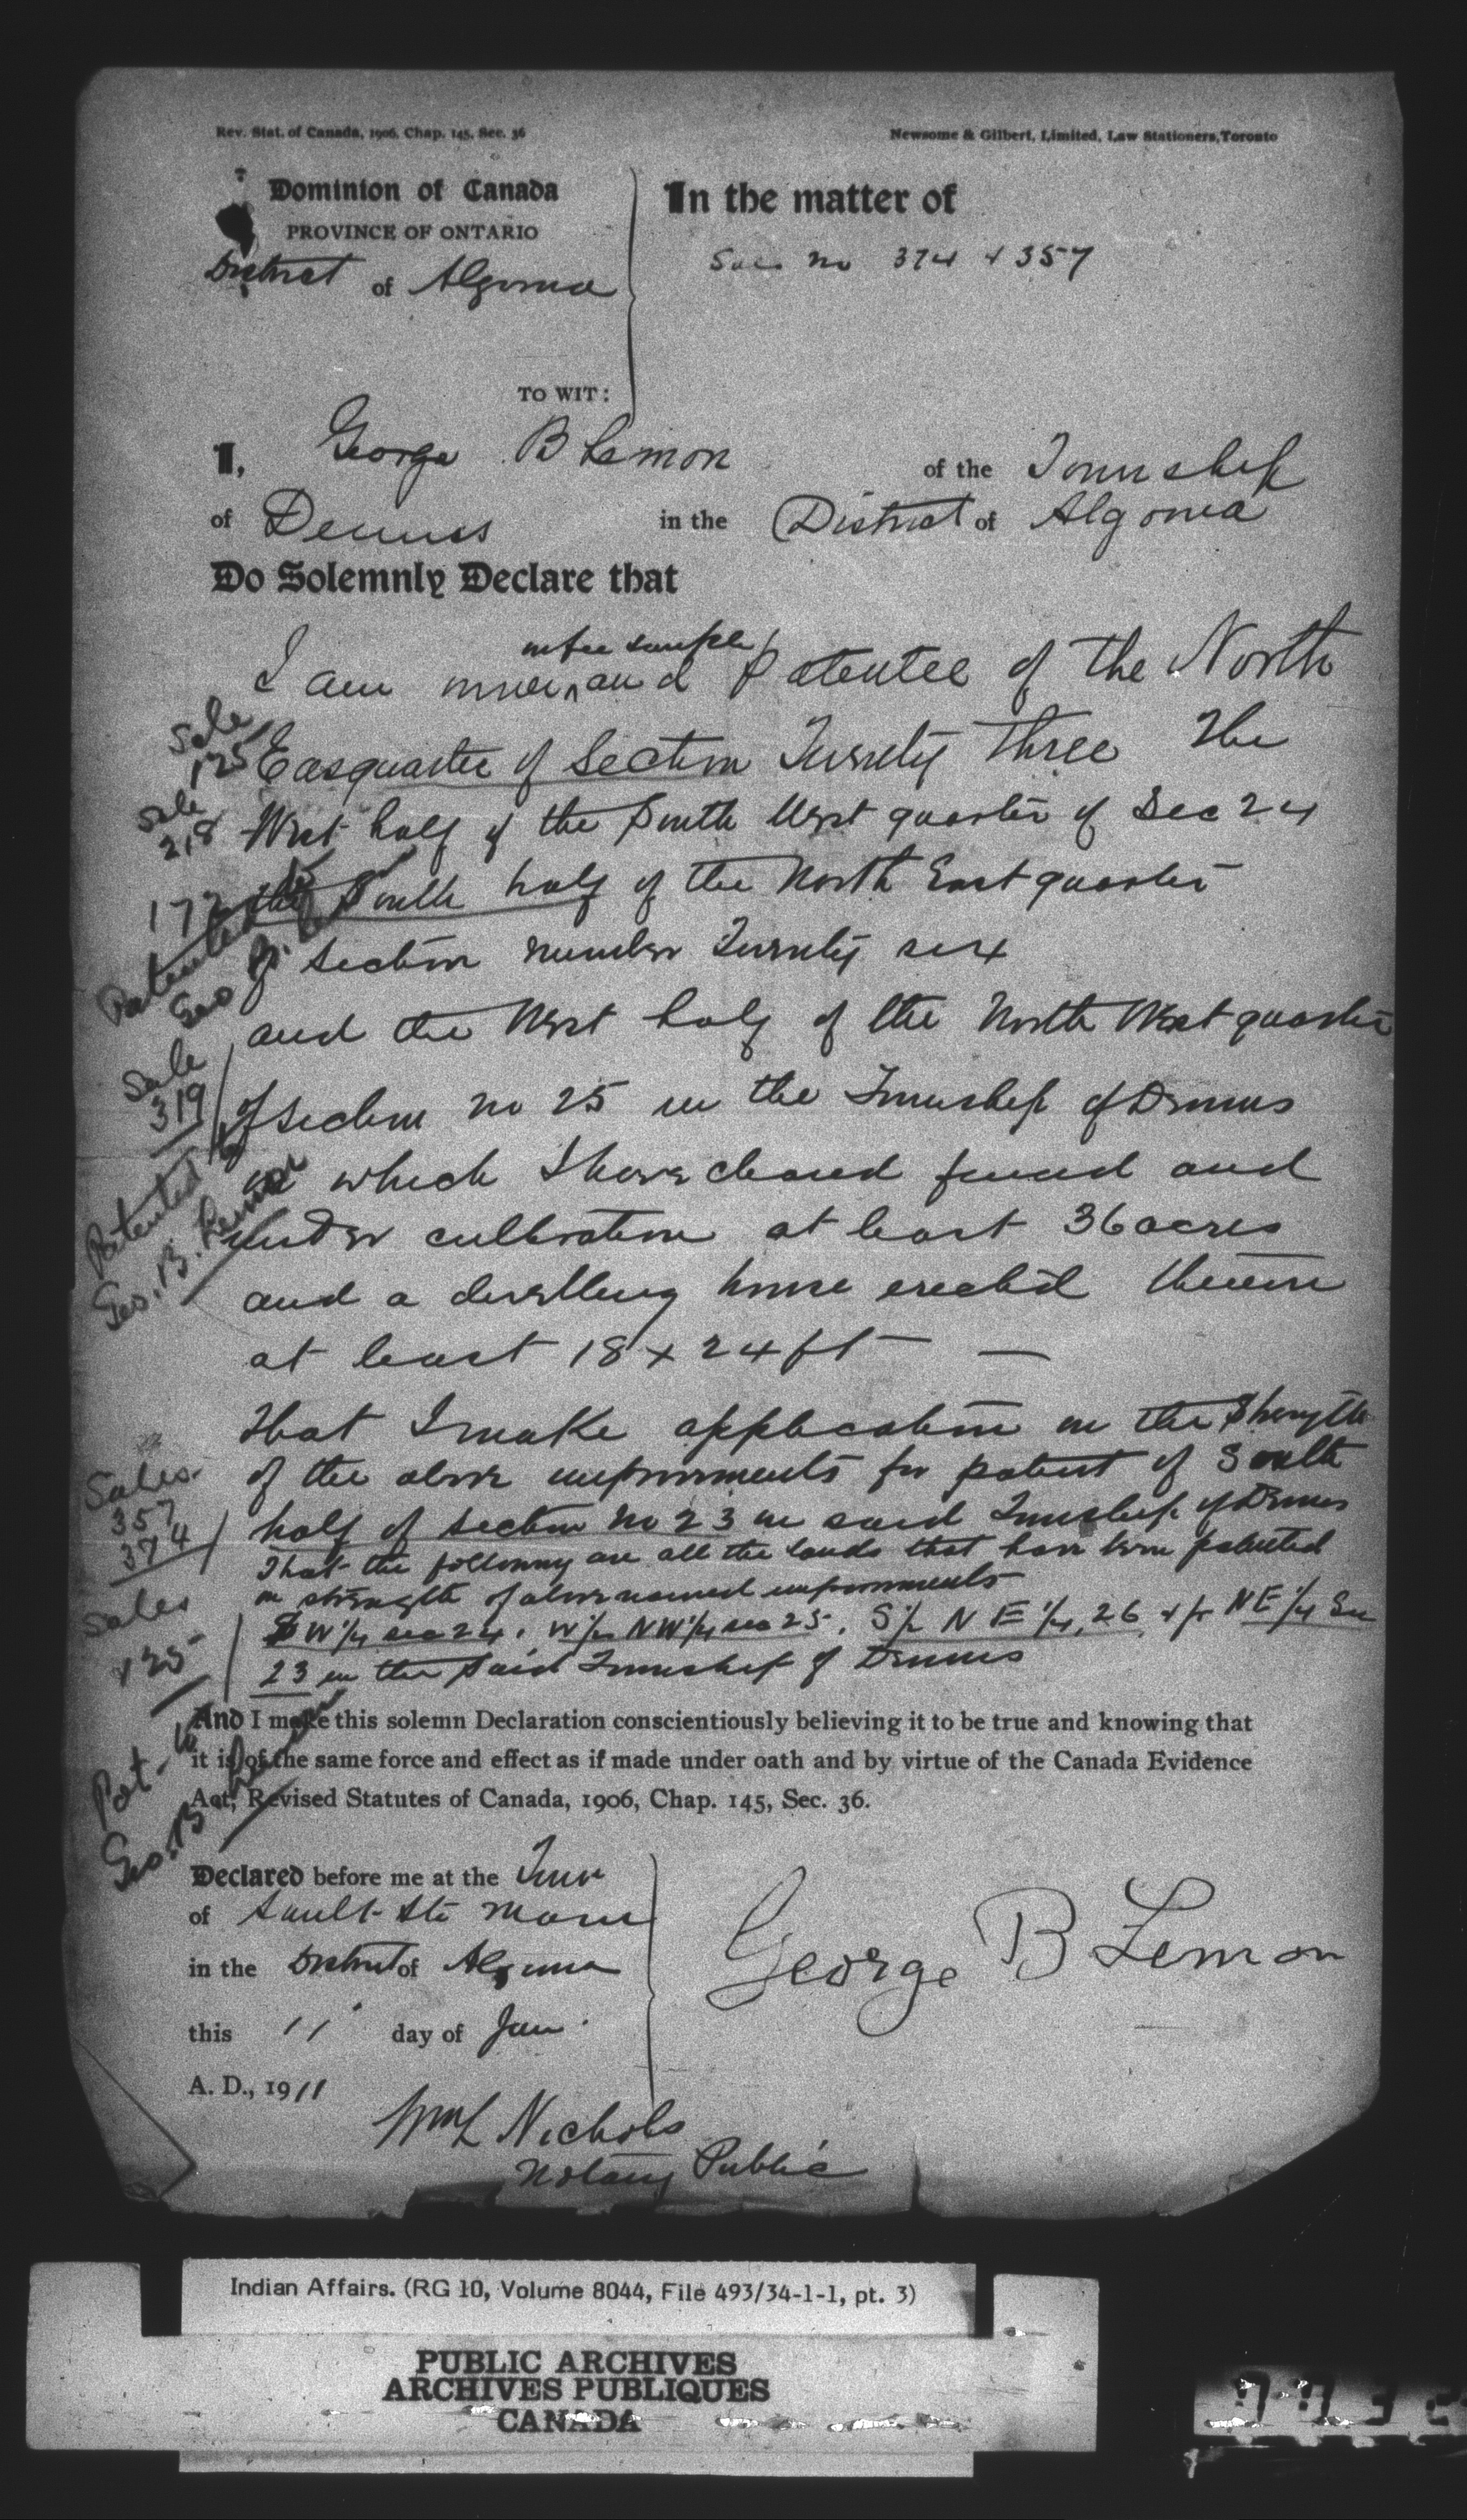 Rev. Stat. of Canada, 1906, Chap. 145, Sec. 36
Newsome & Gilbert, Limited, Law Stationers, Toronto
Dominion of Canada
PROVINCE OF ONTARIO
District of Algoma
TO WIT:
In the matter of
Sale no 374 & 357
I, George B Lemon of the Township
of Dennis in the District of Algoma
Do Solemnly Declare that
in fee simple
I am owner and Patentee of the North
Sale
125
Easquarter of Section Twenty Three The
Sale
218
West half of the South West quarter of Sec 24
172
the South half of the North East quarter
Patented by
Geo B.
of Section number Twenty six
and the West half of the North West quarter
Sale
319
of Section no 25 in the Township of Dennis
Patented by
Geo. B. Lemon
on which I have cleared fenced and
under cultivation at least 36 acres
and a dwelling house erected thereon
at least 18 x 24 ft
That I make application on the Strength
of the above improvements for patent of South
Sales
357
374
half of Section No 23 in said Township of Dennis
That the following are all the lands that have been patented
on strength of above named improvements
Sales
SW 1/4 sec 24, W 1/2 NW 1/4 sec 25, S 1/2 N E 1/4, 26 & NE 1/4 Sec
23 in the said Township of Dennis
Pat. by
Geo. B Lemon
And I make this solemn Declaration conscientiously believing it to be true and knowing that
it is of the same force and effect as if made under oath and by virtue of the Canada Evidence
Act, Revised Statutes of Canada, 1906, Chap. 145, Sec. 36.
Declared before me at the Town
of Sault Ste Marie
in the District of Algoma
this 11 day of Jan.
A. D., 1911
George B Lemon
Wm L Nichols
Notary Public
Indian Affairs. (RG 10, Volume 8044, File 493/34-1-1, pt. 3)
PUBLIC ARCHIVES
ARCHIVES PUBLIQUES
CANADA